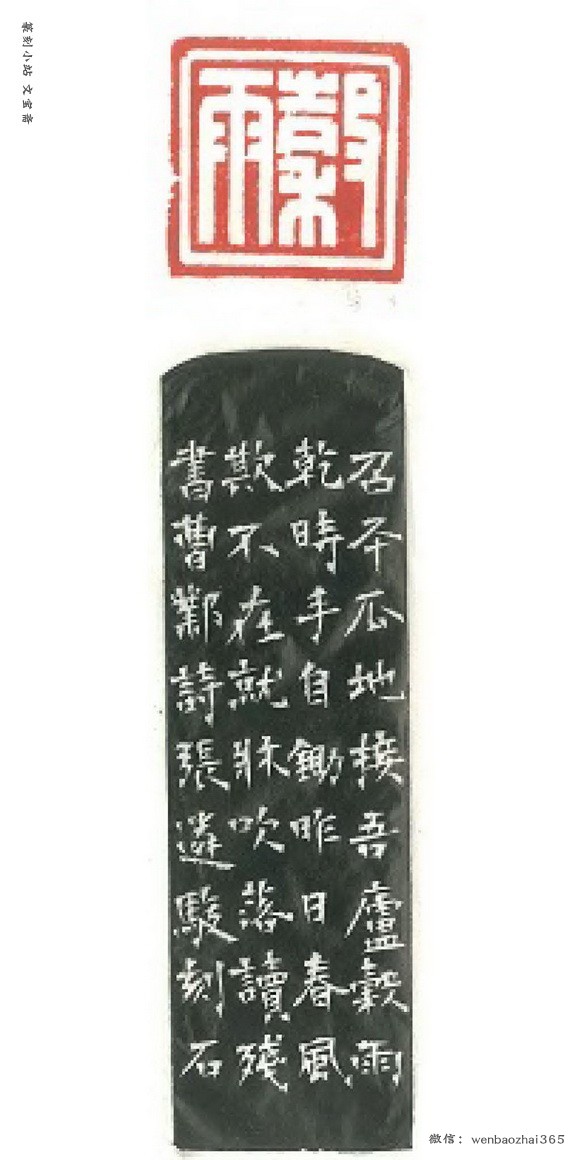 篆刻小站 文宝斋
穀雨
召平瓜地接吾廬穀雨
乾時手自鋤昨日春風
欺不在就牀吹落讀殘
書曹鄴詩張遴駿刻石
微信：wenbaozhai365